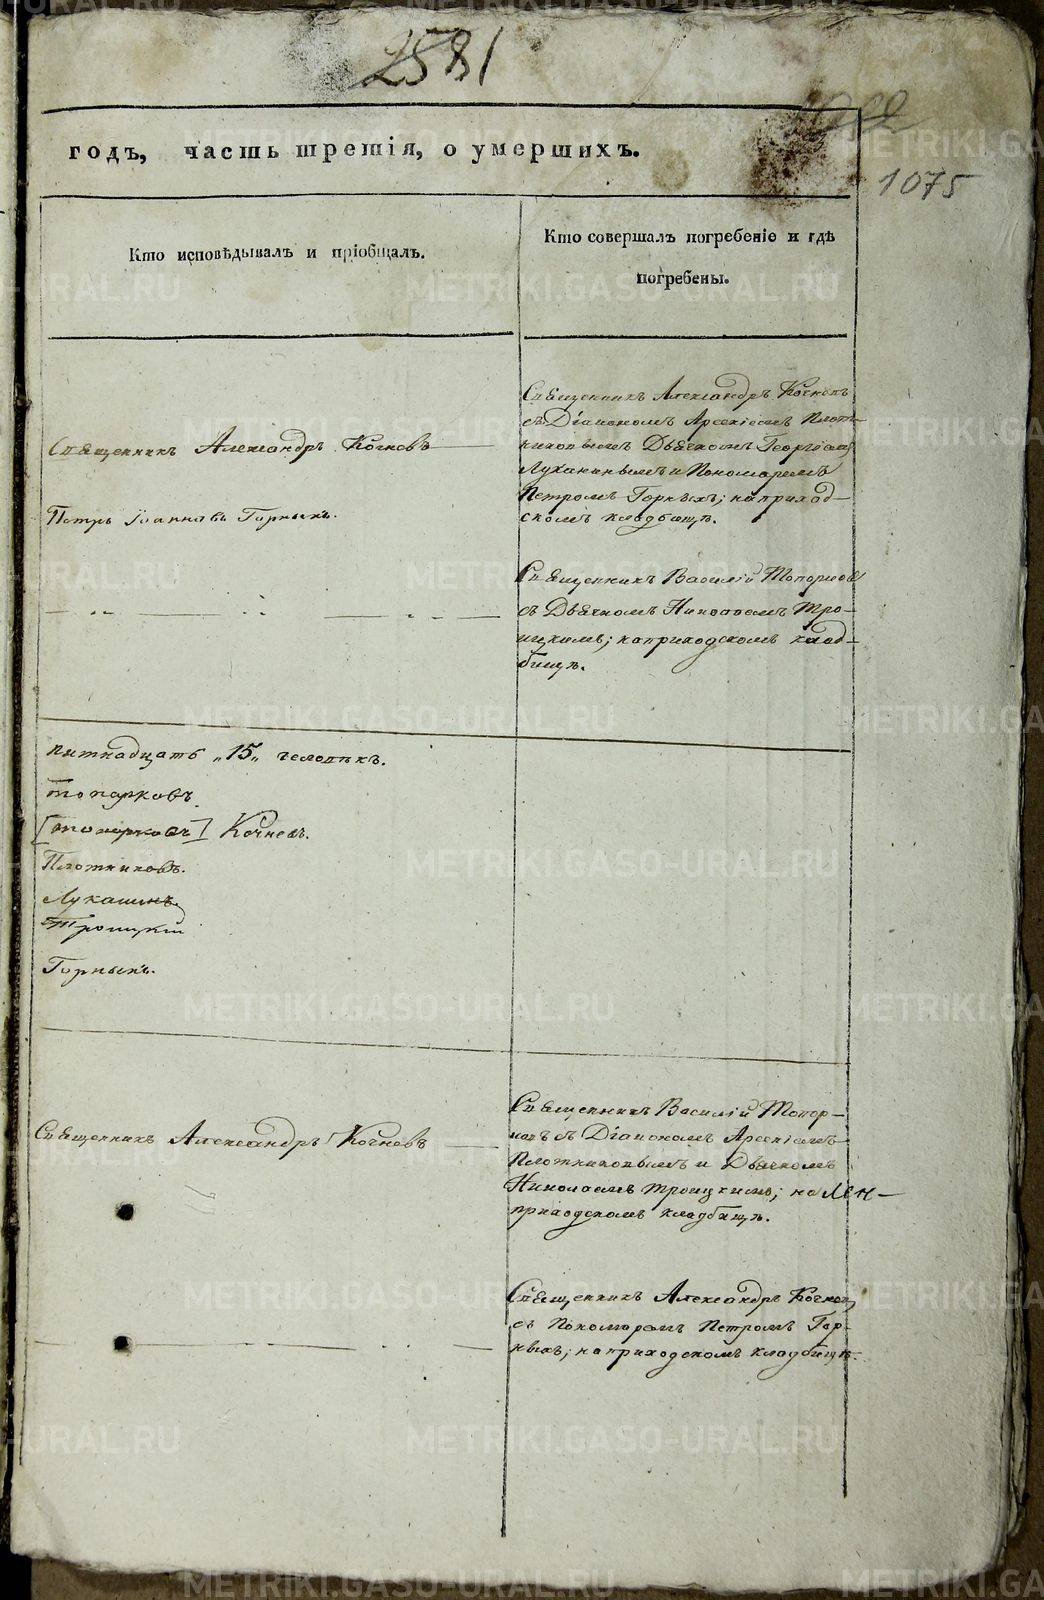 2581
1022
годъ, часть третія, о умершихъ.
1075
Кто исповѣдывалъ и пріобщалъ.
Кто совершалъ погребеніе и гдѣ
погребены.
Священникъ Александръ Кочневъ
Петръ Іоанновъ Горныхъ.
Священникъ Александръ Кочневъ
съ Діакономъ Арсеніемъ Плот-
никовымъ Дьячкомъ Георгіемъ
Лукашинымъ и Пономаремъ
Петромъ Горныхъ; на приход-
скомъ кладбищѣ.
Священникъ Василій Топорков
съ Дьячкомъ Николаемъ Тро-
ицкимъ; на приходскомъ клад-
бищѣ.
пятнадцать „15„ человѣкъ.
Топорковъ
[Топорковъ] Кочневъ.
Плотниковъ.
Лукашинъ.
Троицкій
Горныхъ.
Священникъ Александръ Кочневъ
Священникъ Василій Топор-
ковъ съ Діакономъ Арсеніемъ
Плотниковымъ и Дьячкомъ
Николаемъ Троицкимъ; на
приходскомъ кладбищѣ.
Священникъ Александръ Кочневъ
съ Пономаремъ Петромъ Гор-
ныхъ; на приходскомъ кладбищѣ.
METRIKI.GASO-URAL.RU